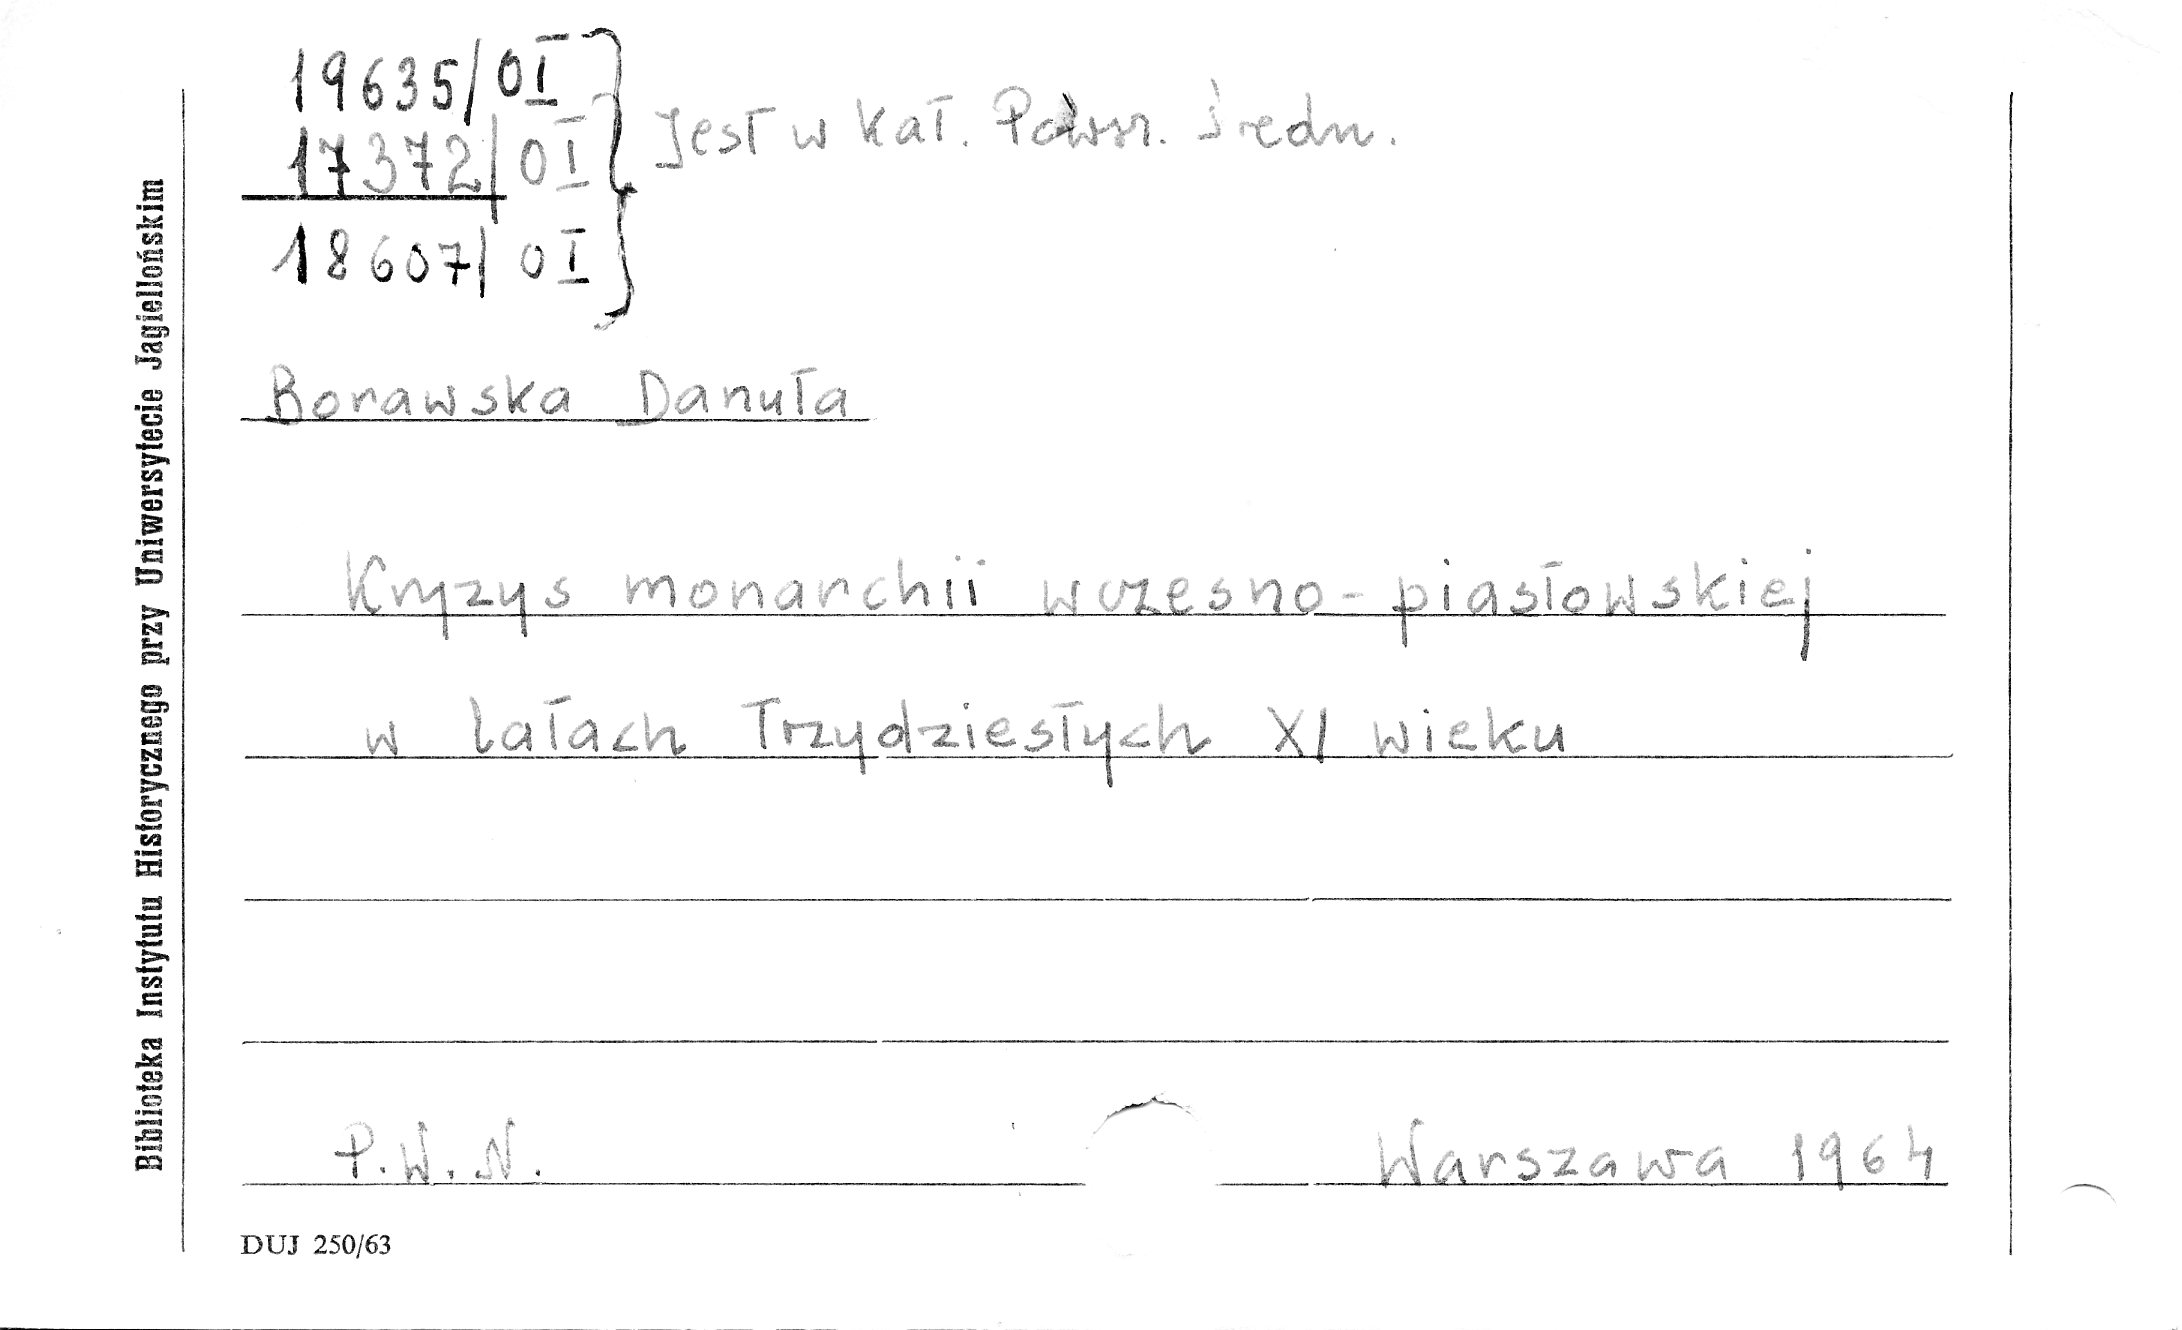 19635/OI
17372/OI
18607/OI
Jest w kat. Powsz. Średn.
Borawska Danuta
Kryzys monarchii wczesno-piastowskiej
w latach trzydziestych XI wieku
P.W.N. Warszawa 1964
DUJ 250/63
Biblioteka Instytutu Historycznego przy Uniwersytecie Jagiellońskim